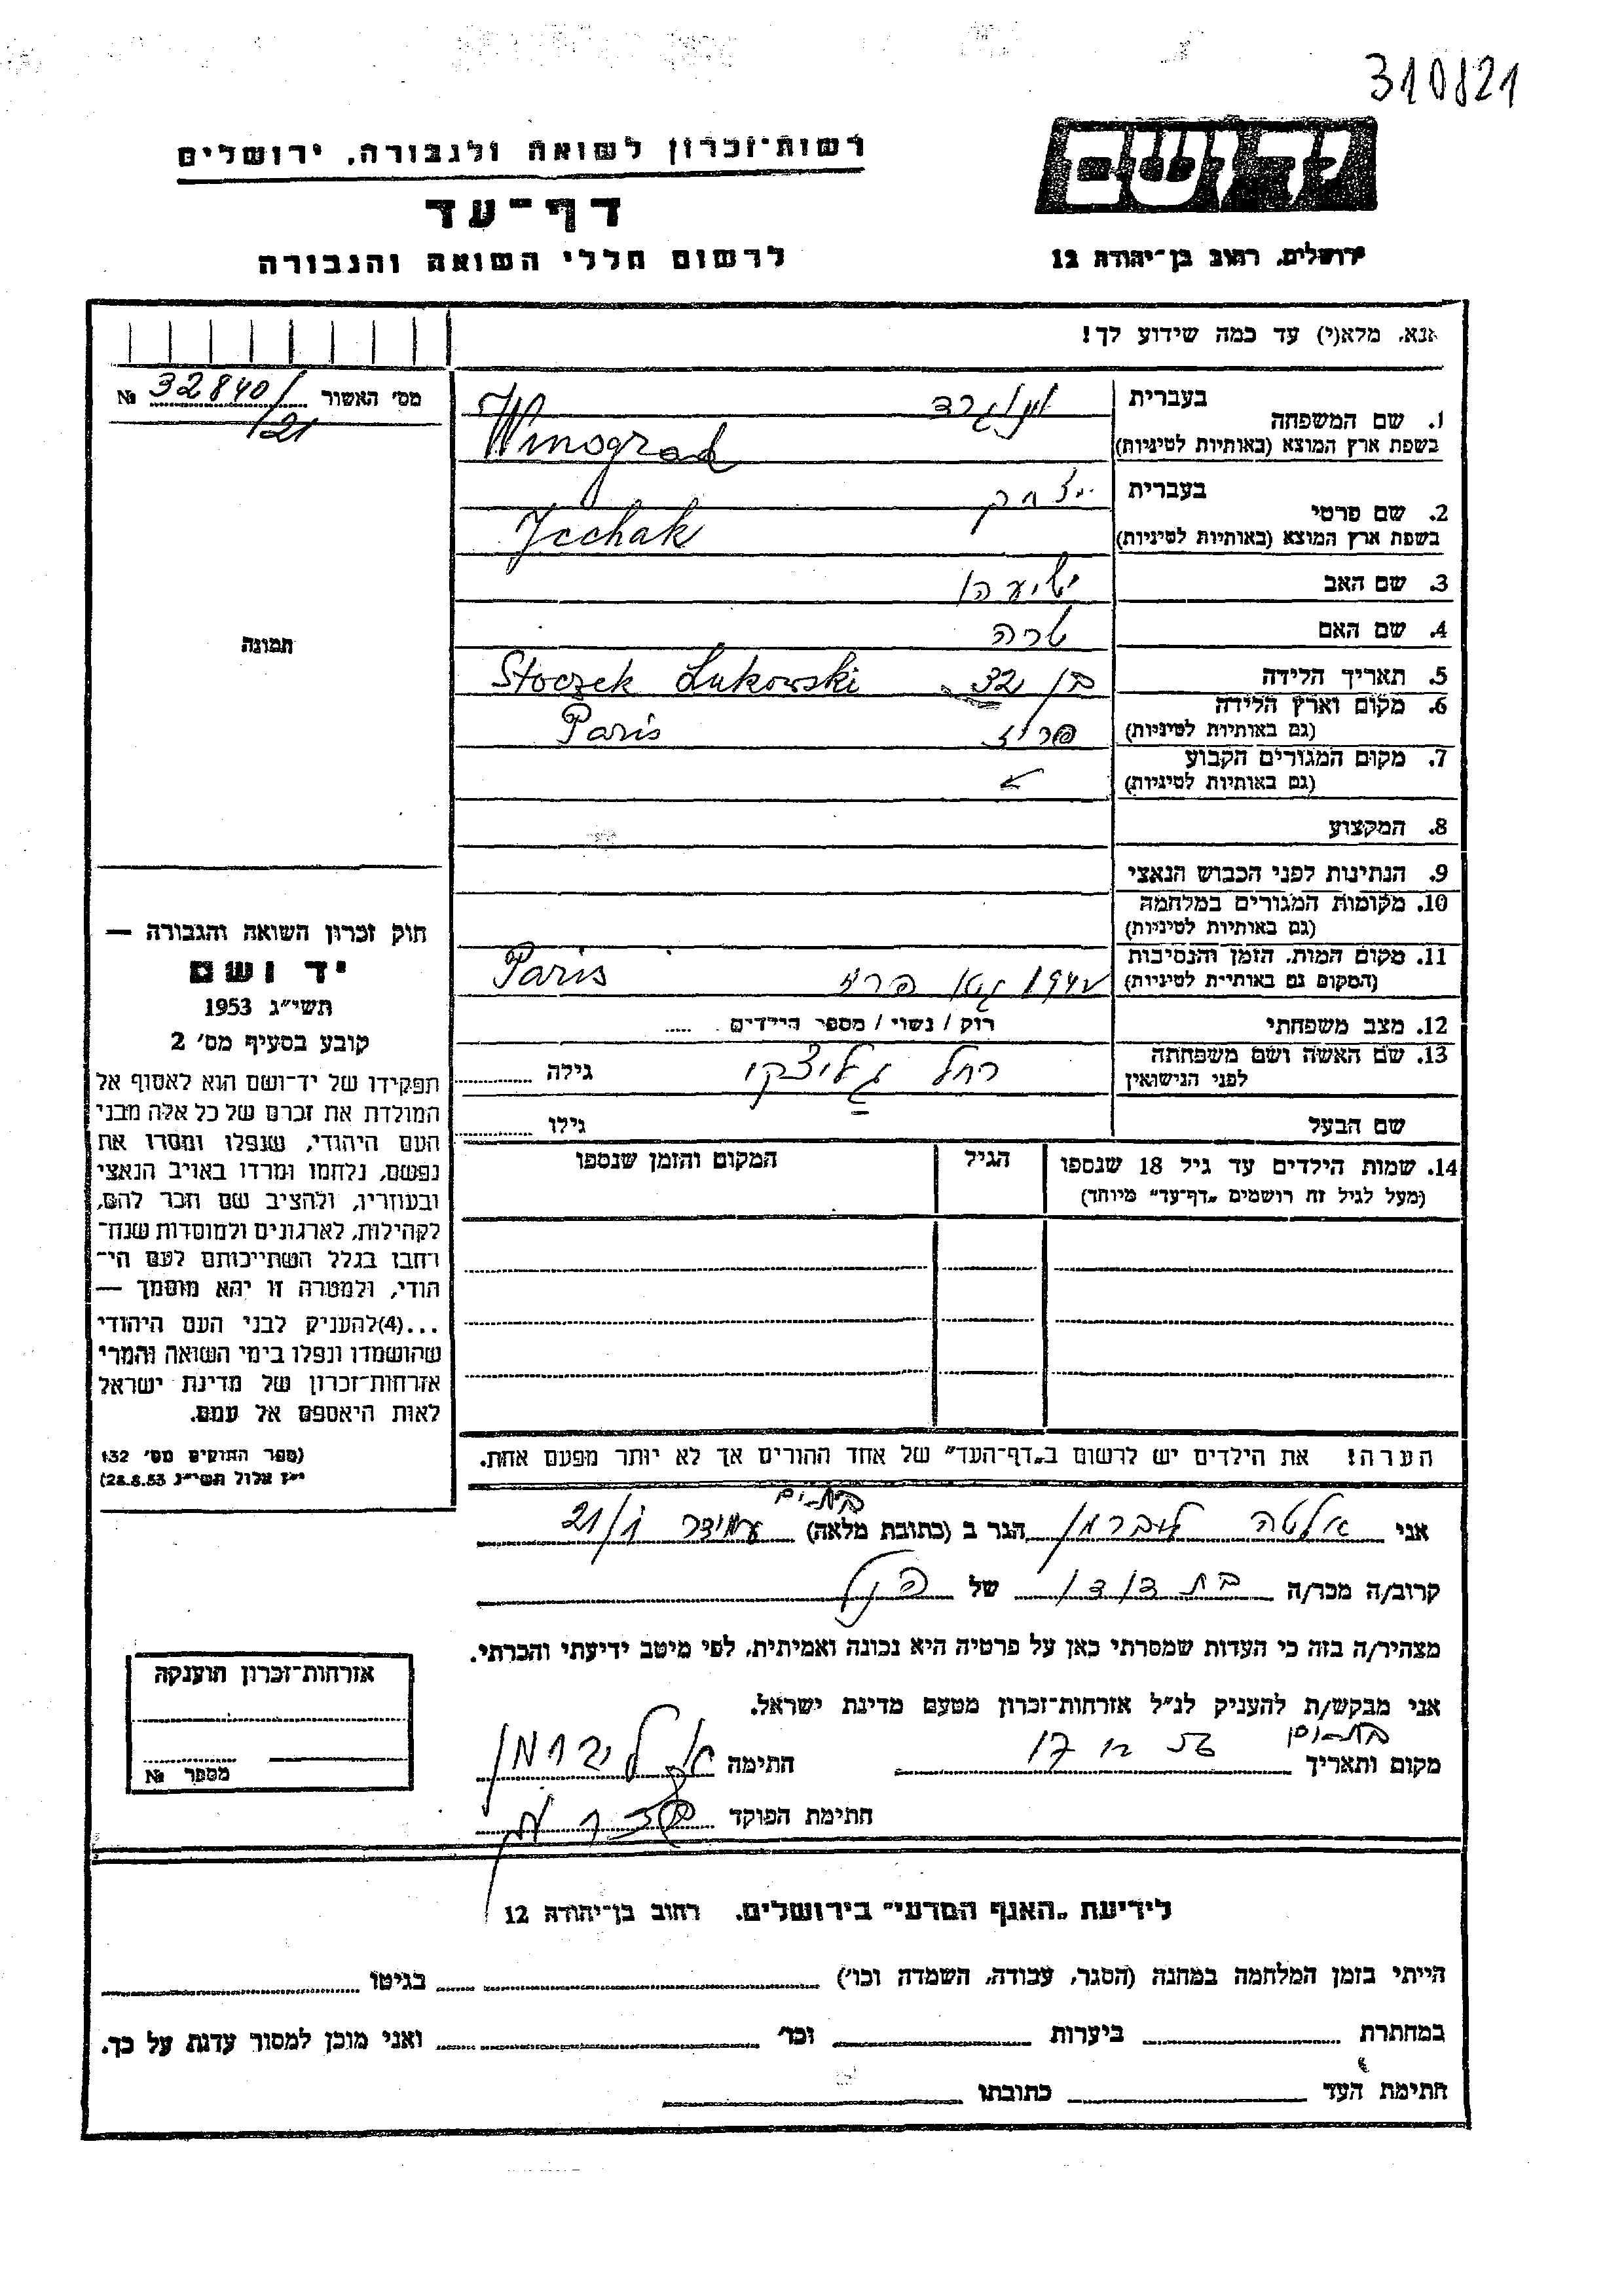 310821
רשות־זכרון לשואה ולגבורה, ירושלים
יד ושם
דף־עד
לרשום חללי השואה והגבורה
ירושלים, רחוב בן־יהודה 12
אנא, מלא(י) עד כמה שידוע לך!
מס׳ האשור 32840/ №
/21
1. שם המשפחה
בעברית וינוגרד
בשפת ארץ המוצא (באותיות לטיניות) Winograd
2. שם פרטי
בעברית יצחק
בשפת ארץ המוצא (באותיות לטיניות) Icchak
3. שם האב ישעיהו
4. שם האם שרה
5. תאריך הלידה בן 32 Stoczek Łukowski
6. מקום וארץ הלידה
(גם באותיות לטיניות) פריז Paris
7. מקום המגורים הקבוע
(גם באותיות לטיניות)
8. המקצוע
9. הנתינות לפני הכבוש הנאצי
10. מקומות המגורים במלחמה
(גם באותיות לטיניות)
11. מקום המות, הזמן והנסיבות
(המקום גם באותיית לטיניות) 1942 Paris
12. מצב משפחתי רוק / נשוי / מספר הילדים .....
13. שם האשה ושם משפחתה
לפני הנישואין רחל גילה
שם הבעל גילו
14. שמות הילדים עד גיל 18 שנספו
(מעל לגיל זה רושמים „דף־עד״ מיוחד)
הגיל
המקום והזמן שנספו
הערה! את הילדים יש לרשום ב„דף־העד״ של אחד ההורים אך לא יותר מפעם אחת.
תמונה
חוק זכרון השואה והגבורה —
יד ושם
תשי״ג 1953
קובע בסעיף מס׳ 2
תפקידו של יד־ושם הוא לאסוף אל
המולדת את זכרם של כל אלה מבני
העם היהודי, שנפלו ומסרו את
נפשם, נלחמו ומרדו באויב הנאצי
ובעוזריו, ולהציב שם וזכר להם,
לקהילות, לארגונים ולמוסדות שנח־
רחבו בגלל השתייכותם לעם הי־
הודי, ולמטרה זו יהא מוסמך —
...(4)להעניק לבני העם היהודי
שהושמדו ונפלו בימי השואה והמרי
אזרחות־זכרון של מדינת ישראל
לאות היאספם אל עמם.
(ספר החוקים מס׳ 132
י״ז אלול תשי״ג 28.8.53)
בת-ים
אני אלטה ליברמן הגר ב (כתובת מלאה) עמידר 21/1
קרוב/ה מכר/ה בת דודו של הנ״ל
מצהיר/ה בזה כי העדות שמסרתי כאן על פרטיה היא נכונה ואמיתית, לפי מיטב ידיעתי והכרתי.
אני מבקש/ת להעניק לנ״ל אזרחות־זכרון מטעם מדינת ישראל.
בת-ים
מקום ותאריך 17 12 56 חתימה א. ליברמן
חתימת הפוקד
אזרחות־זכרון הוענקה
מספר №
לידיעת „האגף המדעי״ בירושלים, רחוב בן־יהודה 12
הייתי בזמן המלחמה במחנה (הסגר, עבודה, השמדה וכו׳) בגיטו
במחתרת ביערות וכו׳ ואני מוכן למסור עדות על כך.
חתימת העד כתובתו